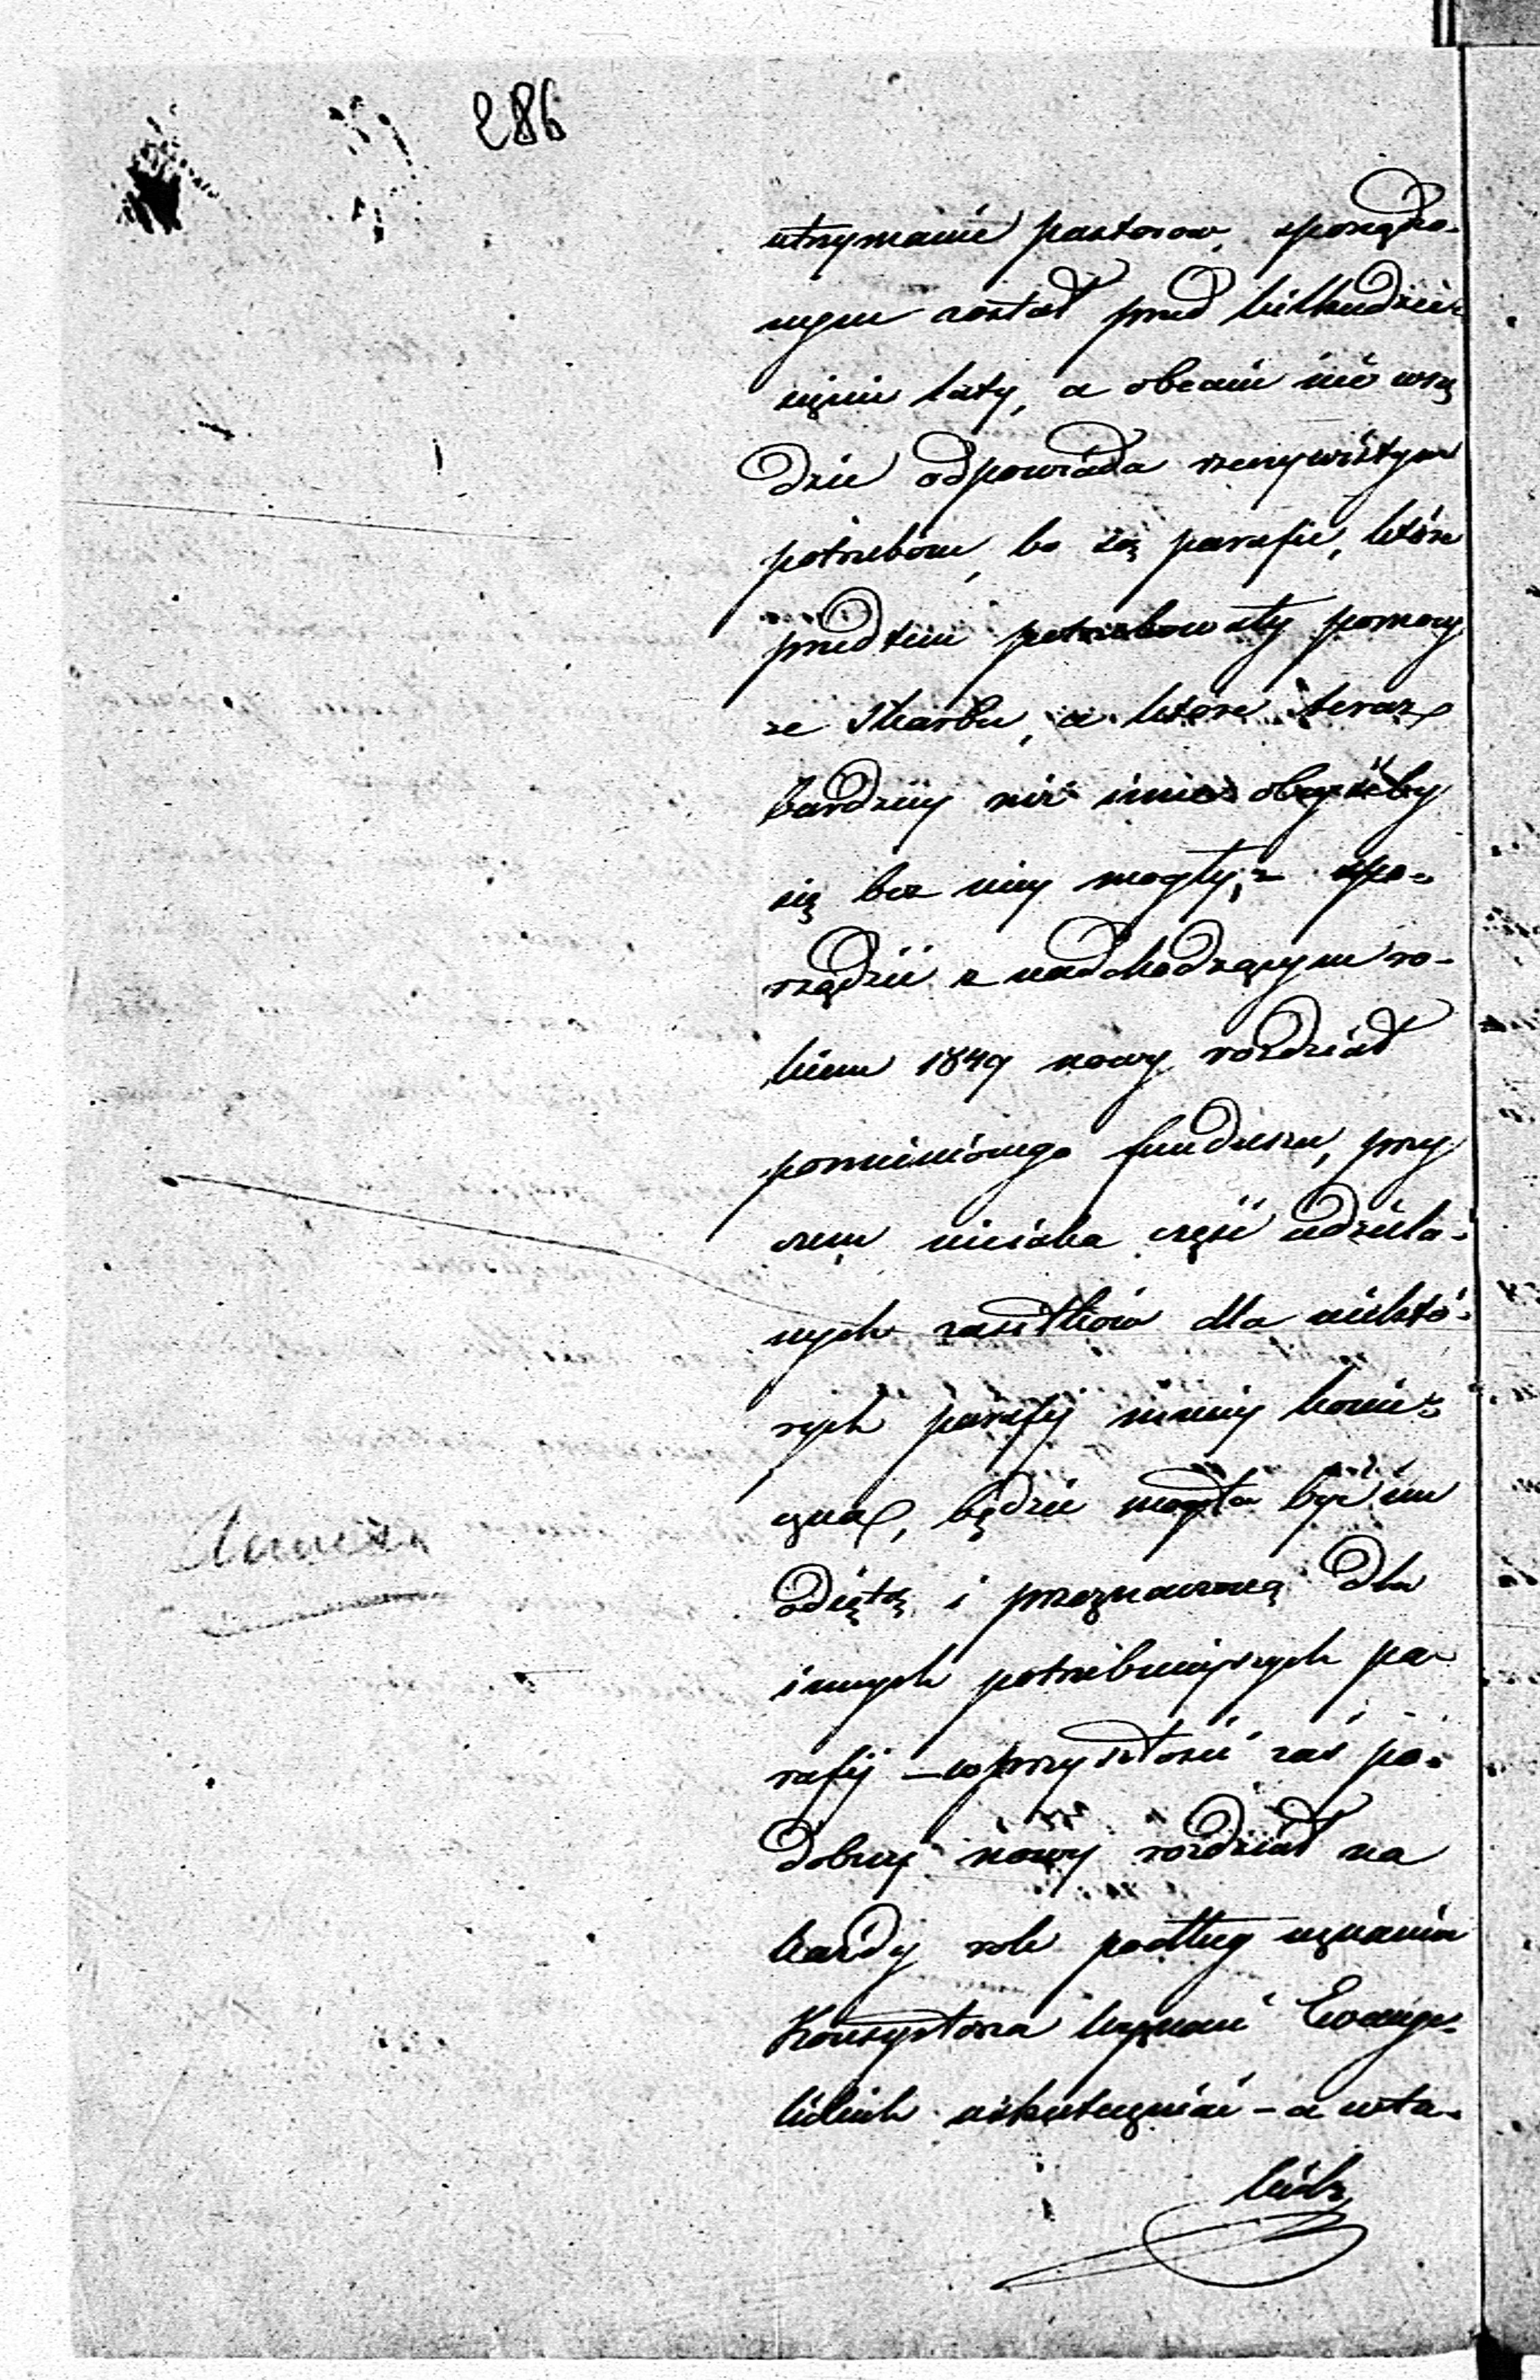 286
utrzymanie pastorow, sporządzo-
nym został przed kilkudzie-
sięciu laty, a obecnie nie wszę
dzie odpowiada rzeczywistym
potrzebom, bo są parafie, które
przedtem potrzebowały pomocy
ze Skarbu, a które teraz
bardziey niż inne obeyśćby
się bez niey mogły; - spo-
rządzić z nadchodzącym ro-
kiem 1849 nowy rozdział
pomienionego funduszu, przy
czem niejaka część udziela-
nych zasiłków dla niektó-
rych parafij mniey koniecz-
zna, będzie mogła być im
odjętą i przeznaczoną dla
innych potrzebniejszych pa-
rafij – w przyszłości zaś po-
dobny nowy rozdział na
każdy rok podług uznania
Konsystorza Wyznań Ewange-
lickich uskuteczniać – a w ta-
kich